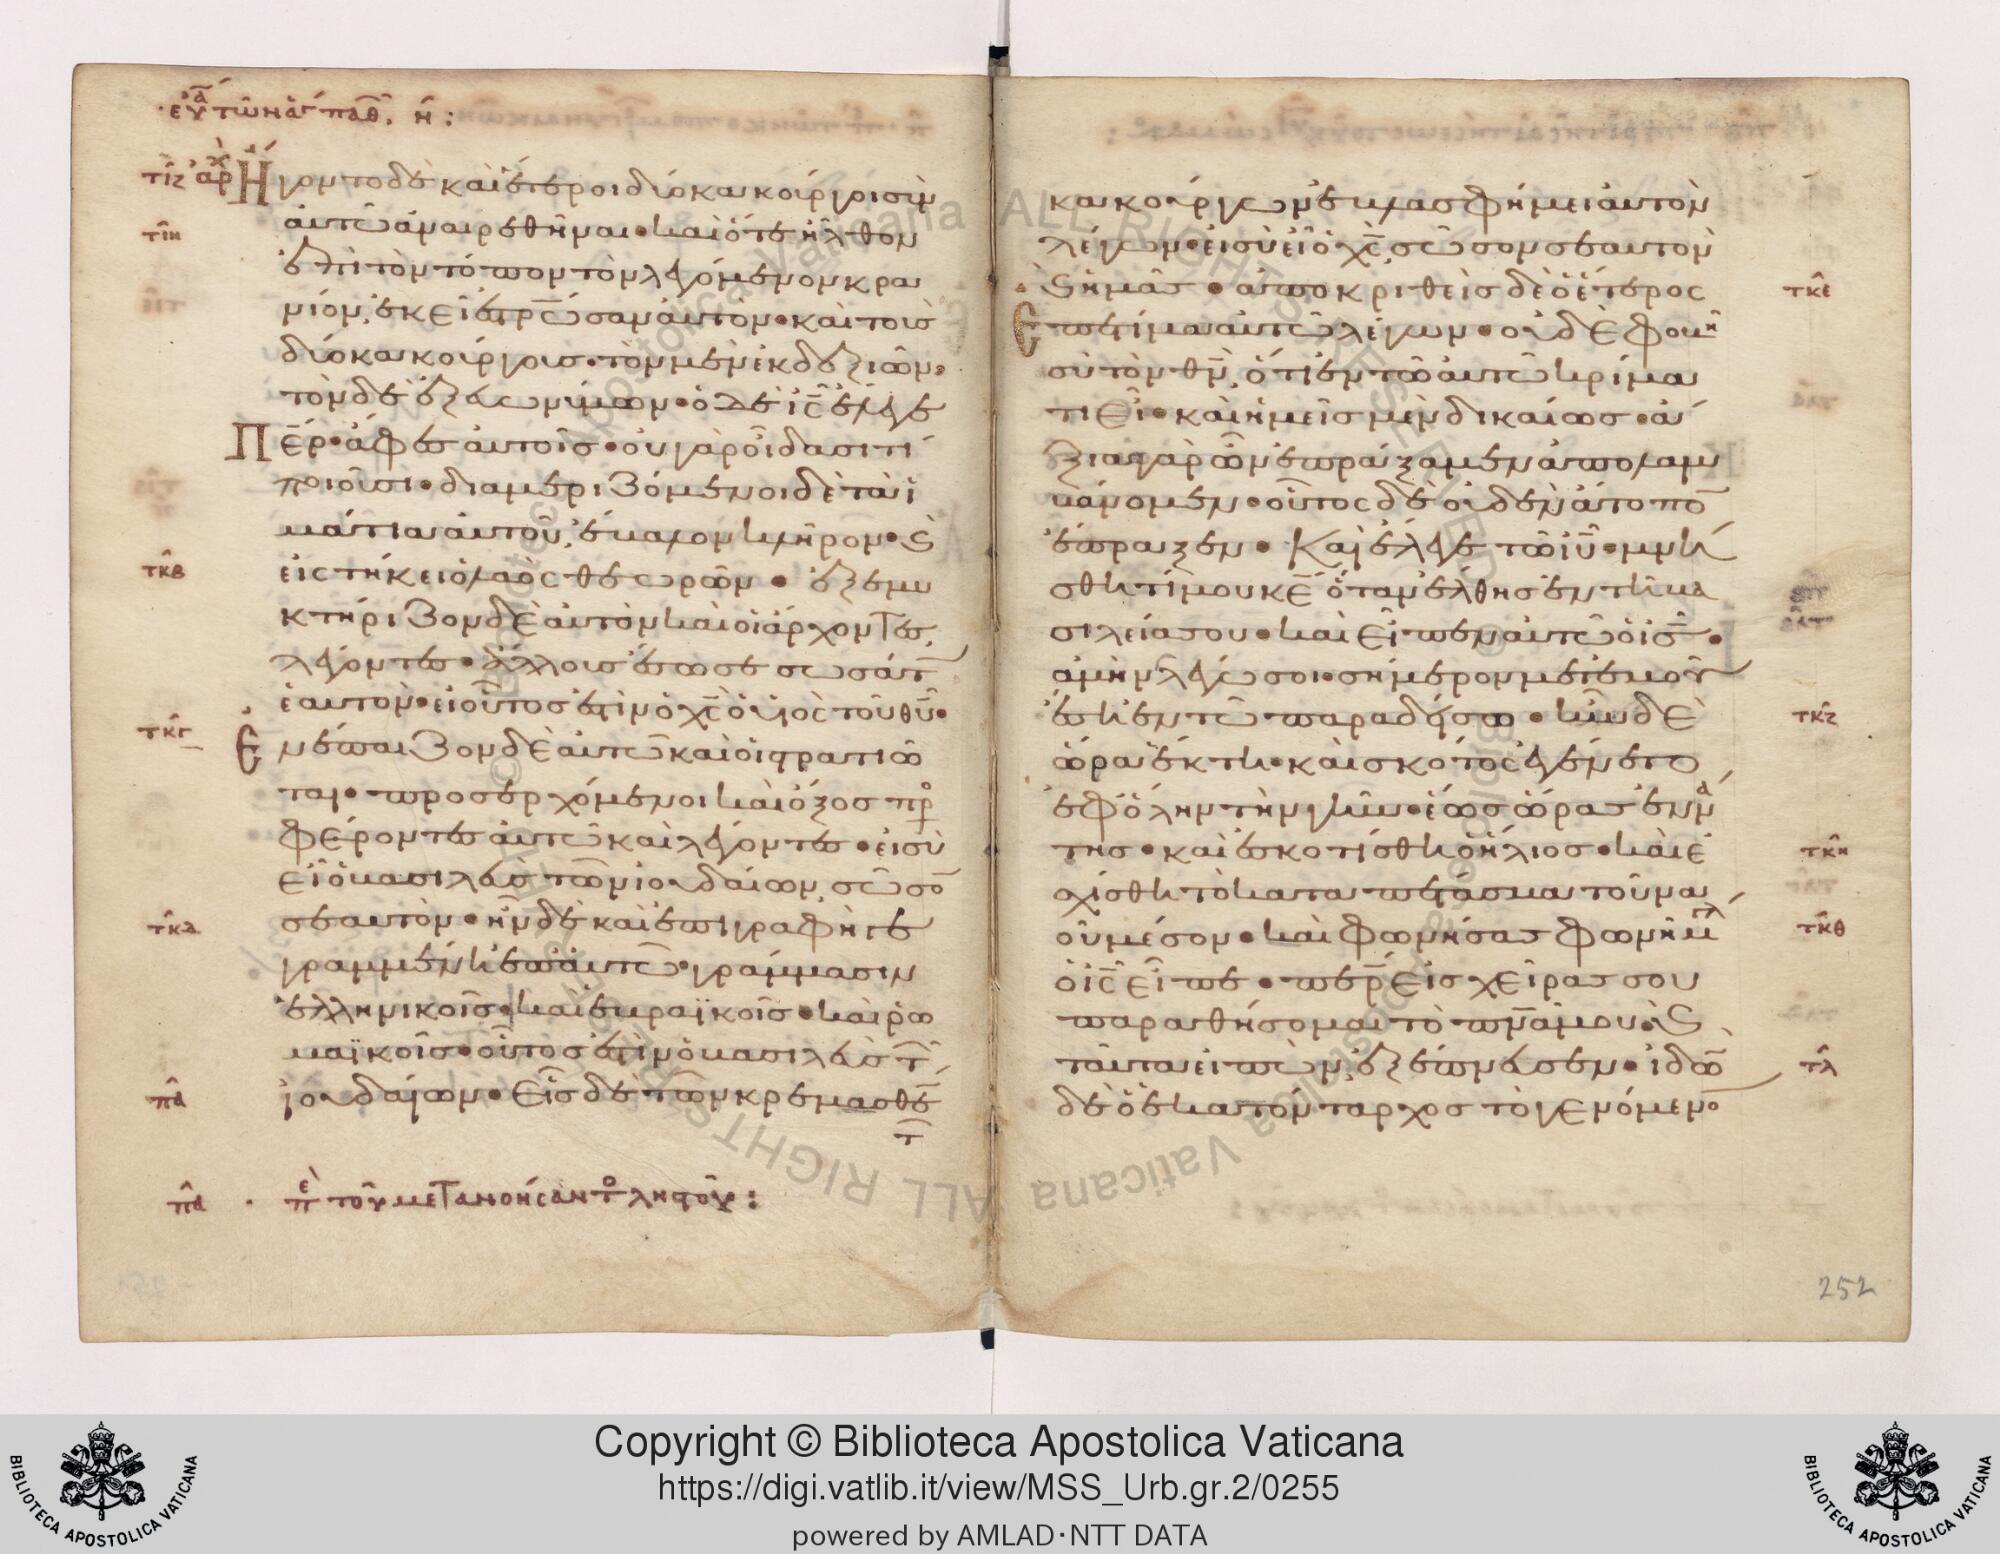 εὐα τῶν ἁγ παθ, η :
τιζ αρχ Ἤγοντο δὲ καὶ ἕτεροι δύο κακοῦργοι σὺν
τιη αὐτῶ ἀναιρεθῆναι • καὶ ὅτε ἦλθον
ἐπὶ τὸν τόπον τὸν λεγόμενον κρα
νίον, ἐκεῖ ἐστρωσαν αὐτόν • καὶ τοὺς
δύο κακούργους • τὸν μὲν ἐκ δεξιῶν •
τὸν δὲ ἐξ εὐωνύμων • ὁ δὲ ις ἔλεγε
Περ • ἄφες αὐτοῖς • οὐ γὰρ οἴδασι τί
ποιοῦσι • διαμεριζόμενοι δὲ τὰ ἱ
μάτια αὐτοῦ, ἔβαλον κλῆρον • ϗ
τκβ εἱστήκει ὁ λαὸς θεωρῶν • ἐξεμυ
κτήριζον δὲ αὐτὸν καὶ οἱ ἄρχοντες,
λέγοντες • ἄλλους ἔσωσε σωσάτ
ἑαυτόν • εἰ οὗτός ἐστιν ὁ χς ὁ υἱὸς τοῦ θυ •
τκγ Ἐνέπαιζον δὲ αὐτῶ καὶ οἱ στρατιῶ
ται • προσερχόμενοι καὶ ὄξος προ
φέροντες αὐτῶ καὶ λέγοντες • εἰ σὺ
εἶ ὁ βασιλεὺς τῶν ἰουδαίων, σῶσο
σεαυτόν • ἦν δὲ καὶ ἐπιγραφὴ γε
τκδ γραμμένη ἐπ' αὐτῶ • γράμμασιν
ἑλληνικοῖς • καὶ ἑβραϊκοῖς • καὶ ῥω
μαϊκοῖς • οὗτός ἐστιν ὁ βασιλεὺς τ
πα ἰουδαίων • Εἷς δὲ τῶν κρεμασθέ
τ
πα · πε τοῦ μετανοήσαντο λῃστοῦ :
κακούργων ἐβλασφήμει αὐτὸν
λέγων • εἰ σὺ εἶ ὁ χς, σῶσον σεαυτὸν
τκε ϗ ἡμᾶς • ἀποκριθεὶς δὲ ὁ ἕτερος
Ἐπετίμα αὐτῶ λέγων • οὐδὲ φοβη
σὺ τὸν θν, ὅτι ἐν τῶ αὐτῶ κρίμα
τι εἶ • καὶ ἡμεῖς μὲν δικαίως • ἄ
ξια γὰρ ὧν ἐπράξαμεν ἀπολαμ
βάνομεν • οὗτος δὲ οὐδὲν ἄτοπο
ἔπραξεν • Καὶ ἔλεγε τῶ ιυ • μνή
σθητί μου κε ὅταν ἔλθης ἐν τῆ βα
σιλεία σου • καὶ εἶπεν αὐτῶ ὁ ις •
ἀμὴν λέγω σοι • σήμερον μετ' ἐμοῦ
τκζ ἔση ἐν τῶ παραδείσω • ἦν δὲ
ὥρα ἕκτη • καὶ σκότος ἐγένετο
ἐφ' ὅλην τὴν γῆν • ἕως ὥρας ἐννά
τκη της • καὶ ἐσκοτίσθη ὁ ἥλιος • καὶ ἐ
σχίσθη τὸ καταπέτασμα τοῦ να
τκθ οῦ μέσον • καὶ φωνήσας φωνῆ μγλ
ὁ ις εἶπε • περ εἰς χεῖρας σου
παραθήσομαι τὸ πνα μου • ϗ
τλ ταῦτα εἰπὼν, ἐξέπνευσεν • ἰδὼ
δὲ ὁ ἑκατόνταρχος τὸ γενόμενο
252
Copyright © Biblioteca Apostolica Vaticana
https://digi.vatlib.it/view/MSS_Urb.gr.2/0255
powered by AMLAD·NTT DATA
BIBLIOTECA APOSTOLICA VATICANA
BIBLIOTECA APOSTOLICA VATICANA